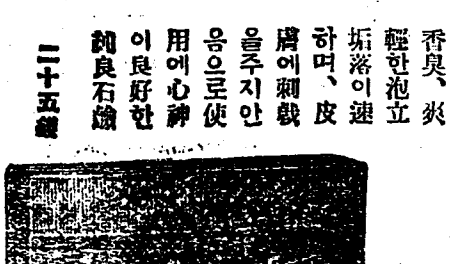 香臭、爽
輕한泡立
垢落이速
하며、皮
膚에刺戟
을주지안
음으로使
用에心神
이良好한
純良石鹼
二十五錢